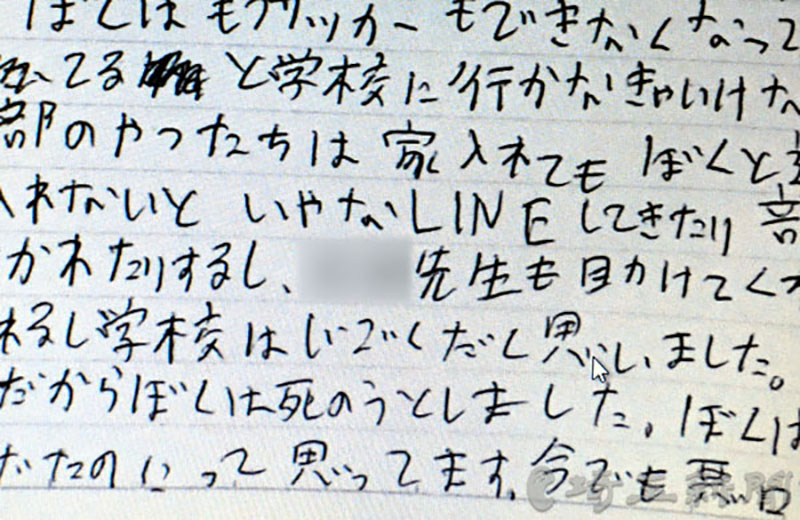 ぼくはもうサッカーもできなくなって
てると学校に行かなきゃいけな
部のやつたちは家入れてもぼくと
れないといやなLINEしてきたり
かれたりするし、先生も目かけてく
れるし学校はじごくだと思いました。
だからぼくは死のうとしました。ぼくは
だったのにって思ってます。今でも悪口
埼玉新聞